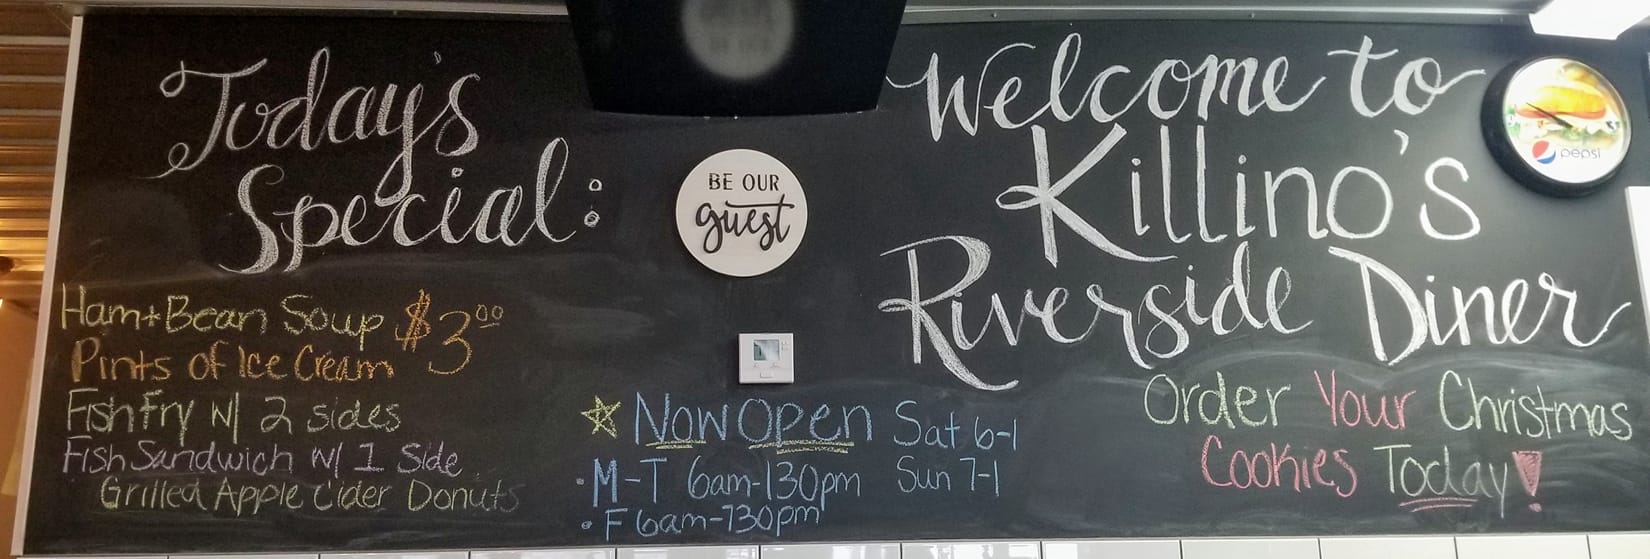 Today's
Special:
Ham+Bean Soup
Pints of Ice Cream $3.00
Fish Fry W/ 2 sides
Fish Sandwich W/ 1 Side
Grilled Apple Cider Donuts
BE OUR
guest
☆ Now Open
• M-T 6am-130pm
• F 6am-730pm
Sat 6-1
Sun 7-1
Welcome to
Killino's
Riverside Diner
Order Your Christmas
Cookies Today!
pepsi